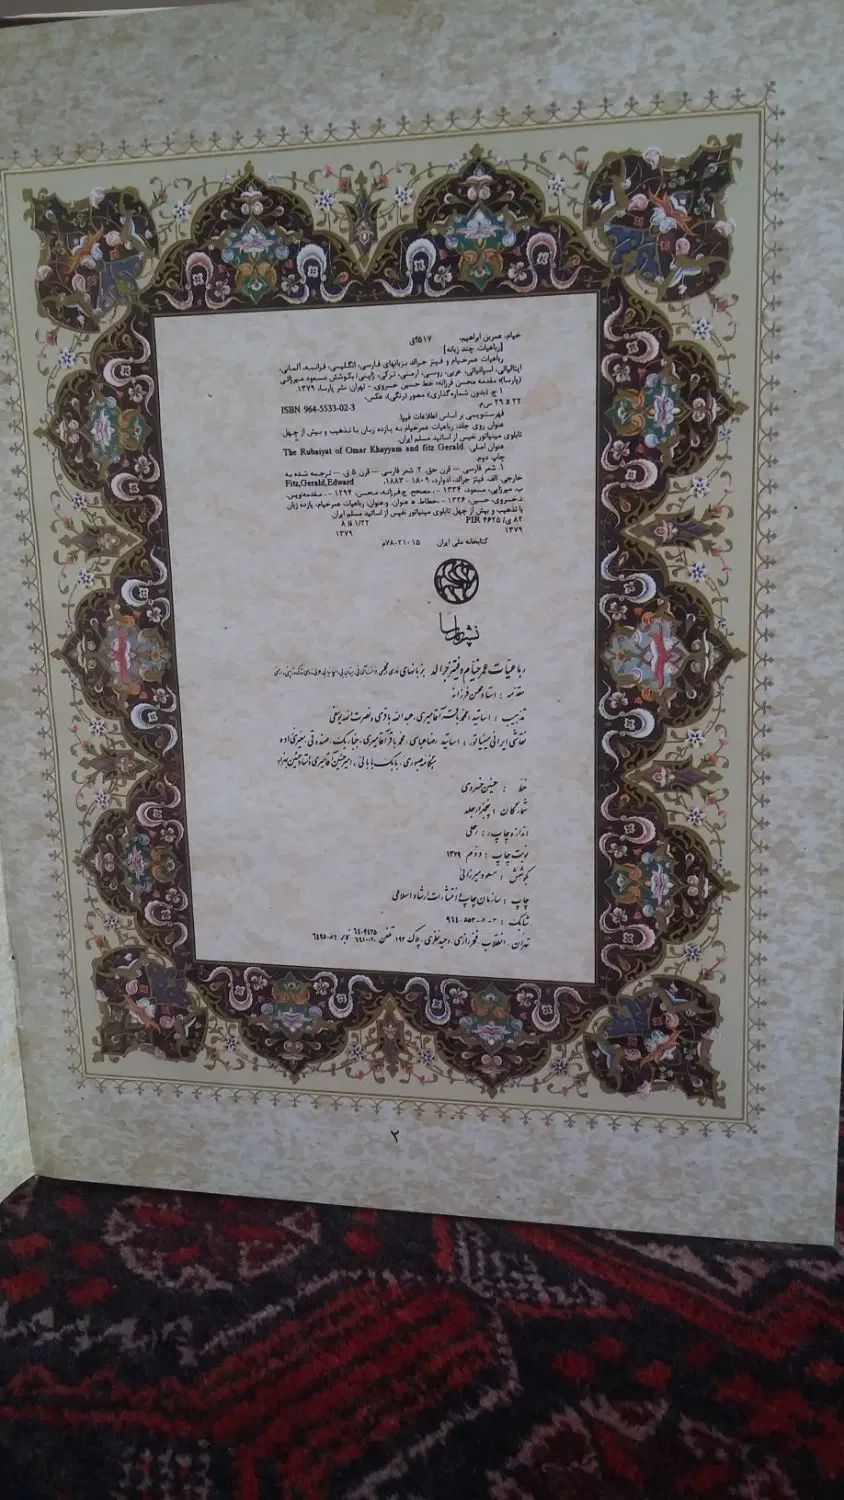 خیام، عمربن ابراهیم، ۵۱۷ ق
[رباعیات. چند زبانه]
رباعیات عمرخیام و فیتز جرالد بزبانهای فارسی، انگلیسی، فرانسه، آلمانی،
ایتالیائی، اسپانیائی، عربی، روسی، ارمنی، ترکی، ژاپنی/ بکوشش مسعود میرزائی
(پارسا)؛ مقدمه محسن فرزانه؛ خط حسین خسروی. - تهران: نشر پارسا، ۱۳۷۹.
۱ ج. (بدون شماره‌گذاری): مصور (رنگی)، عکس.
۲۲ x ۲۹ س‌م.
ISBN 964-5533-02-3
فهرستنویسی بر اساس اطلاعات فیپا.
عنوان روی جلد: رباعیات عمرخیام به یازده زبان با تذهیب و بیش از چهل
تابلوی مینیاتور نفیس از اساتید مسلم ایران.
عنوان اصلی: The Rubaiyat of Omar Khayyam and fitz Gerald.
چاپ دوم.
۱. شعر فارسی — قرن ۵ق. ۲. شعر فارسی — قرن ۵ ق. — ترجمه شده به
خارجی. الف. فیتز جرالد، ادوارد، ۱۸۰۹ - ۱۸۸۳. Fitz,Gerald,Edward
ب. میرزایی، مسعود، ۱۳۳۴ - ، مصحح. ج. فرزانه، محسن، ۱۲۹۴ - ، مقدمه‌نویس.
د. خسروی، حسین، ۱۳۳۴ - ، خطاط. ه. عنوان. و. عنوان: رباعیات عمرخیام. یازده زبان
با تذهیب و بیش از چهل تابلوی مینیاتور نفیس از اساتید مسلم ایران
۸۲ ی/ PIR ۴۶۲۵ ۸ فا ۱/۲۲
۱۳۷۹ ۱۳۷۹
کتابخانه ملی ایران ۲۱۰۱۵-۷۸م
نشر پارسا
رباعیات عمر خیام و فیتز جرالد بزبانهای
مقدمه : استاد محسن فرزانه
تذهیب : اساتید : محمد باقر آقامیری، عبدالله باقری و نصرت الله یوسفی
نقاشی ایرانی مینیاتور : اساتید : محمد باقر آقامیری،
خط : حسین خسروی
شمارگان : پنجهزار جلد
اندازه چاپ : رحلی
نوبت چاپ : دوم ۱۳۷۹
بکوشش : مسعود میرزائی
چاپ : سازمان چاپ و انتشارات ارشاد اسلامی
شابک : ۳-۰۲-۵۵۳۳-۹۶۴
تهران - انقلاب - فخررازی - وحید نظری - پلاک ۱۹۲ تلفن
۲